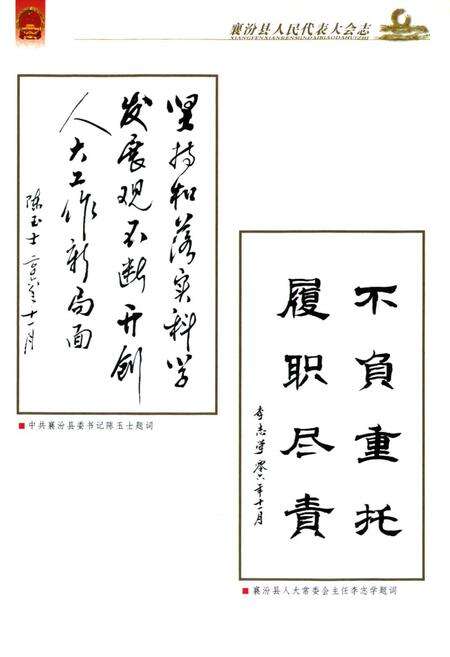 襄汾县人民代表大会志
XIANGFENXIANRENMINDAIBIAODAHUIZHI
坚持和落实科学
发展观不断开创
人大工作新局面
陈玉士 二〇〇六年十一月
■ 中共襄汾县委书记陈玉士题词
不负重托
履职尽责
李志学 零六年十一月
■ 襄汾县人大常委会主任李志学题词